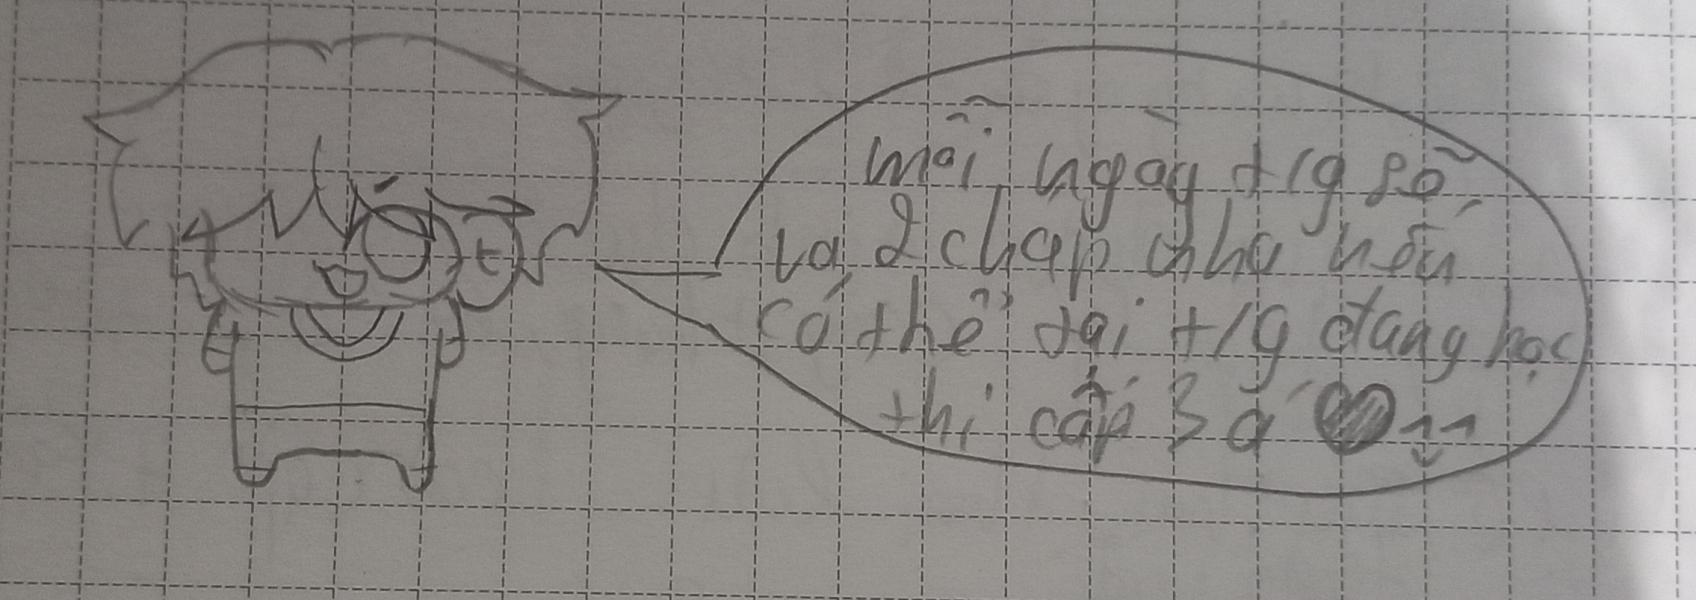 mỗi ngày t/g sẽ
ra 2 chap nha nếu
có thể tại t/g đang học
thi cấp 3 á